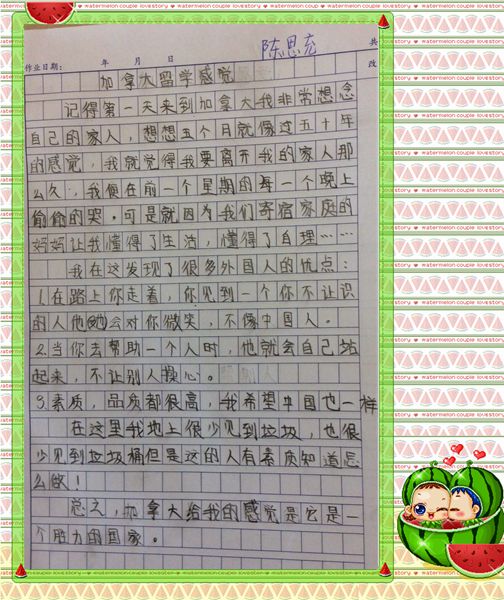 watermelon couple lovestory ♥ watermelon couple lovestory
陈思充
共
作业日期： 年 月 日
改
加拿大留学感觉
记得第一天来到加拿大我非常想念
自己的家人，想想五个月就像过五十年
的感觉，我就觉得我要离开我的家人那
么久，我便在前一个星期的每一个晚上
偷偷的哭。可是就因为我们寄宿家庭的
妈妈让我懂得了生活，懂得了自理……
我在这发现了很多外国人的优点：
1.在路上你走着，你见到一个你不认识
的人他(她)会对你微笑，不像中国人。
2.当你去帮助一个人时，他就会自己站
起来，不让别人操心。
3.素质，品质都很高，我希望中国也一样
在这里我地上很少见到垃圾，也很
少见到垃圾桶但是这的人有素质知道怎
么做！
总之，加拿大给我的感觉是它是一
个胜力的国家。